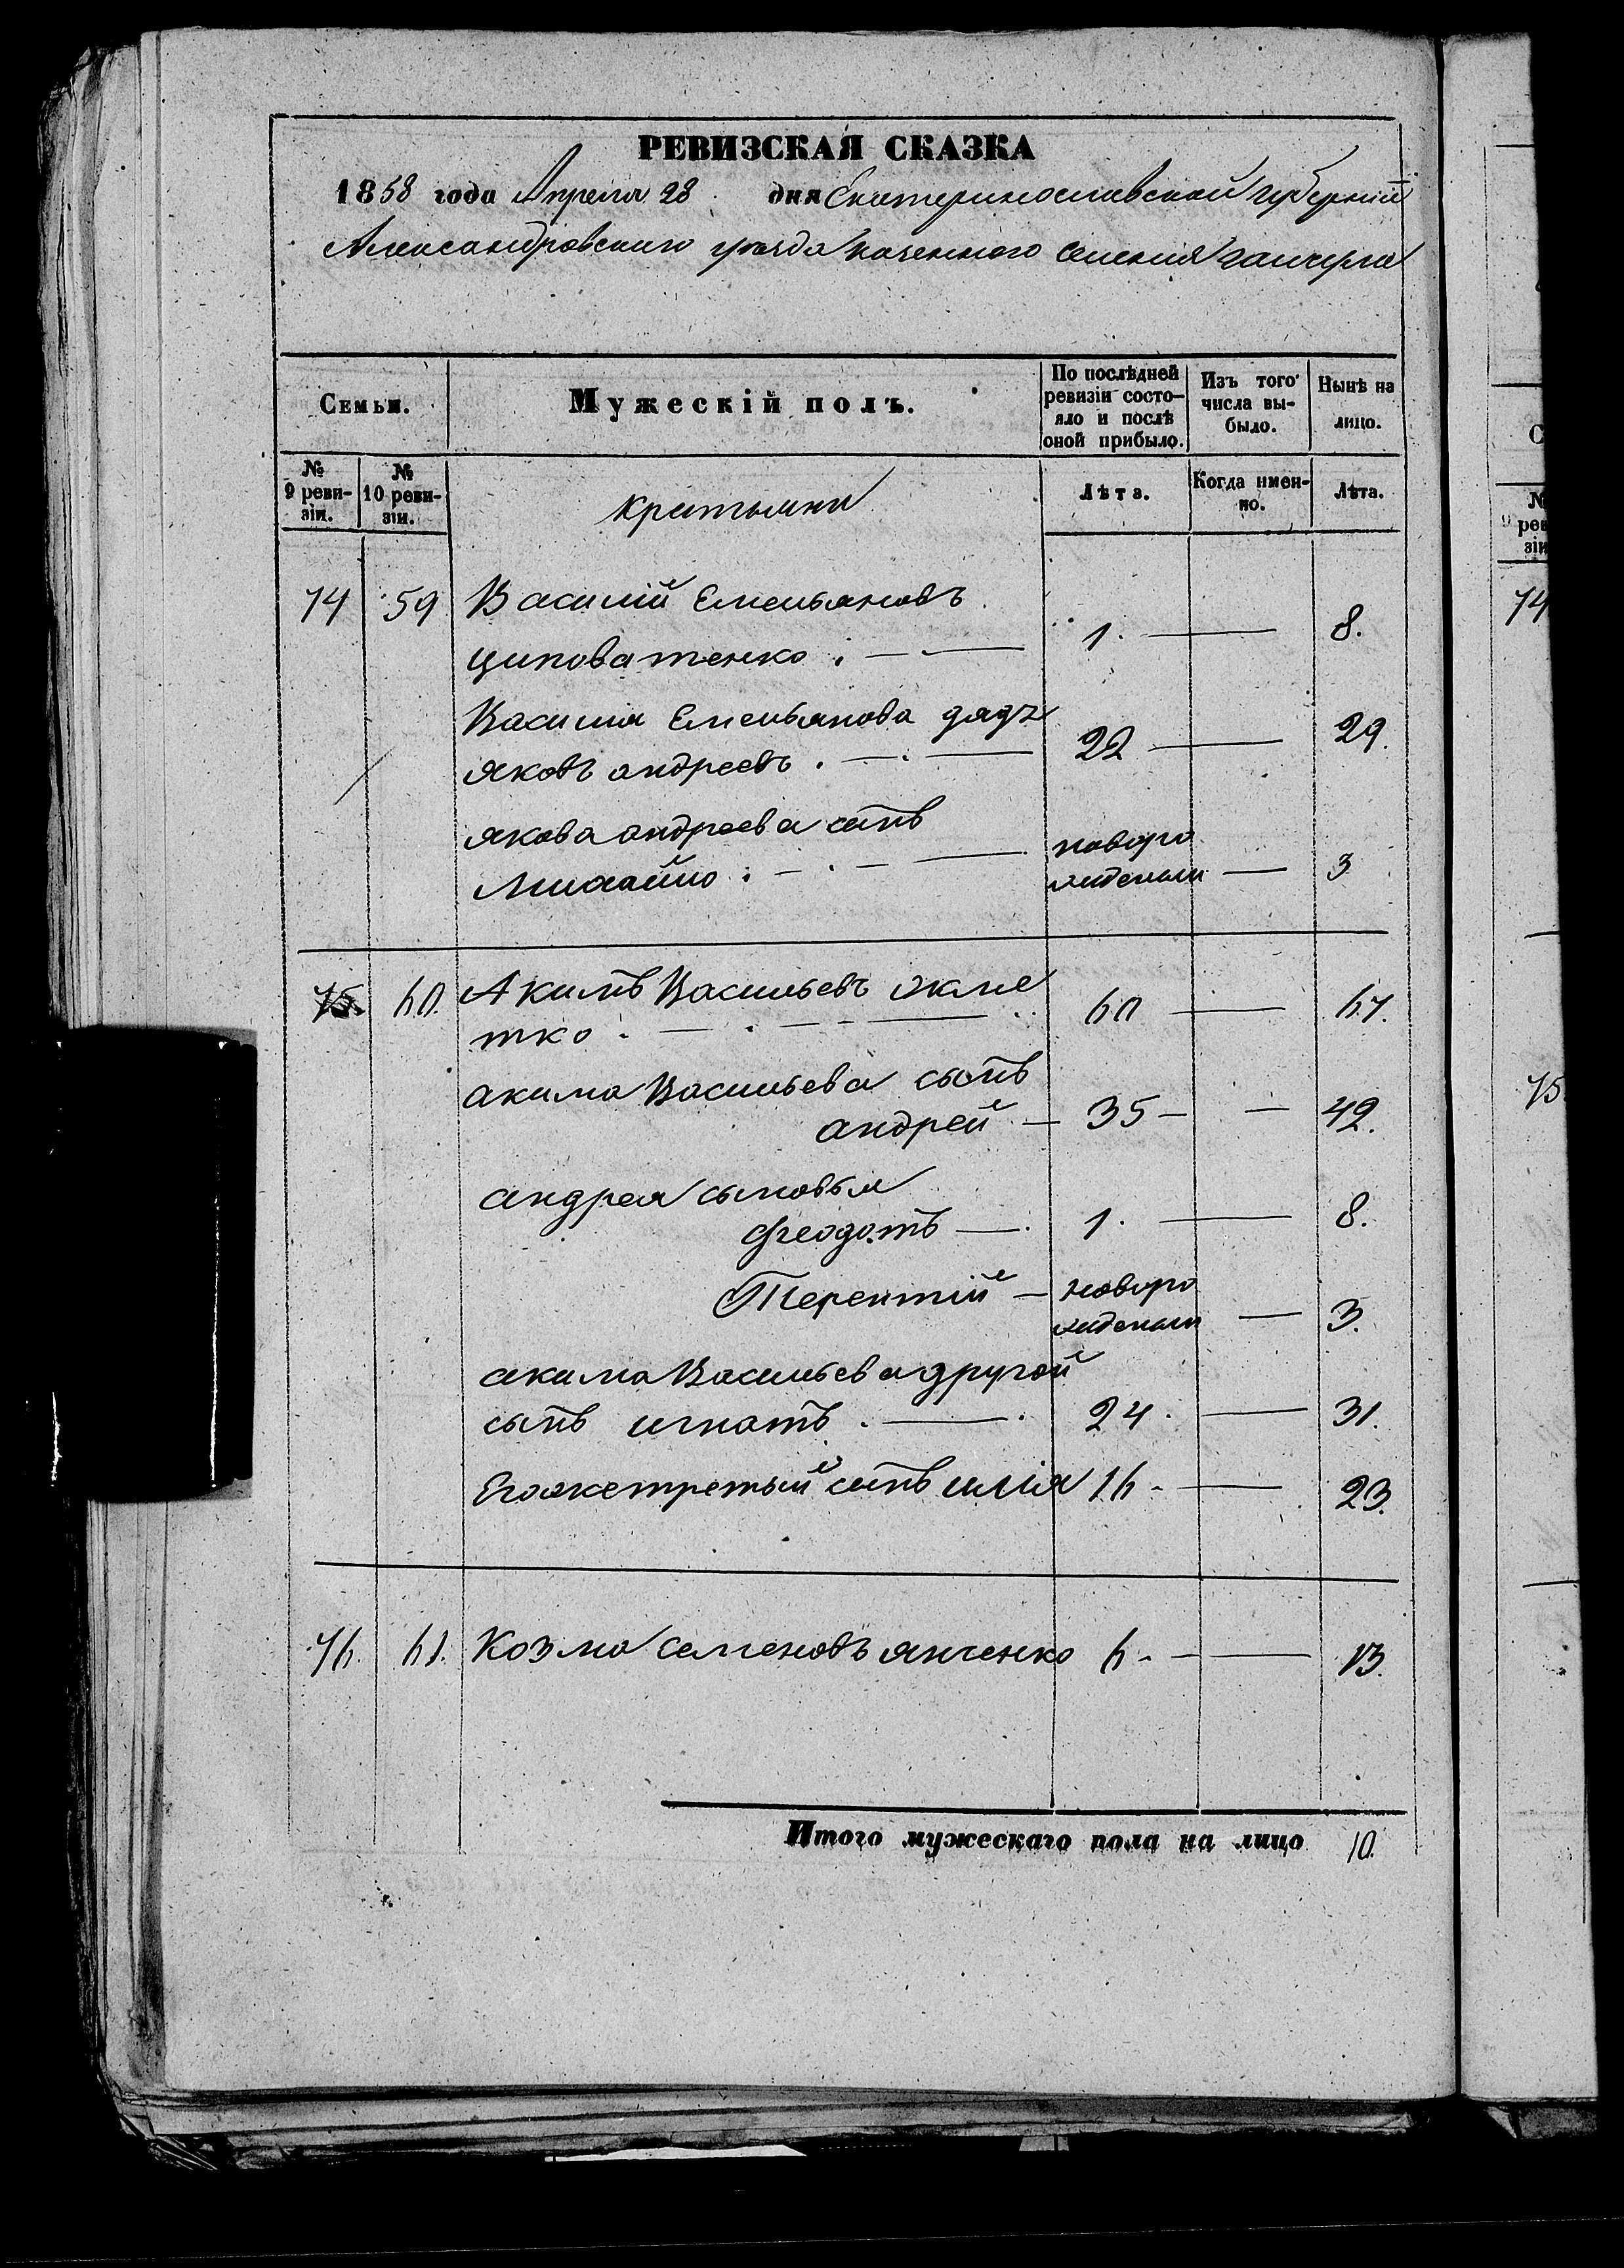 РЕВИЗСКАЯ СКАЗКА
1858 года Апреля 28 дня Екатеринославской губерніи
Александровского уезда казенного селения гайчула
Семьи.
Мужескій полъ.
По послѣдней ревизіи состо-
яло и послѣ
оной прибыло.
Изъ того
числа вы-
было.
Нынѣ на
лицо.
№
9 реви-
зіи.
№
10 реви-
зіи.
Лѣта.
Когда имен-
но.
Лѣта.
74 59 Василій Емельяновъ
циповатенко 1. 8.
Василия Емельянова дядъ
яковъ андреевъ 22 29.
якова андреева сынъ
михайло новоро
жденым 3
75. 60. Акимъ Васильевъ
тко 60 67.
акима Васильева сынъ
андрей 35 42.
андрея сыновья
феодотъ 1. 8.
Терентій новоро
жденым 3.
акима Васильева другой
сынъ игнатъ 24. 31.
Егожетретый сынъ илія 16 23.
76. 61. Козма семеновъ янченко 6 13.
Итого мужескаго пола на лицо 10.
С
№
9 рев
зіи
74
75